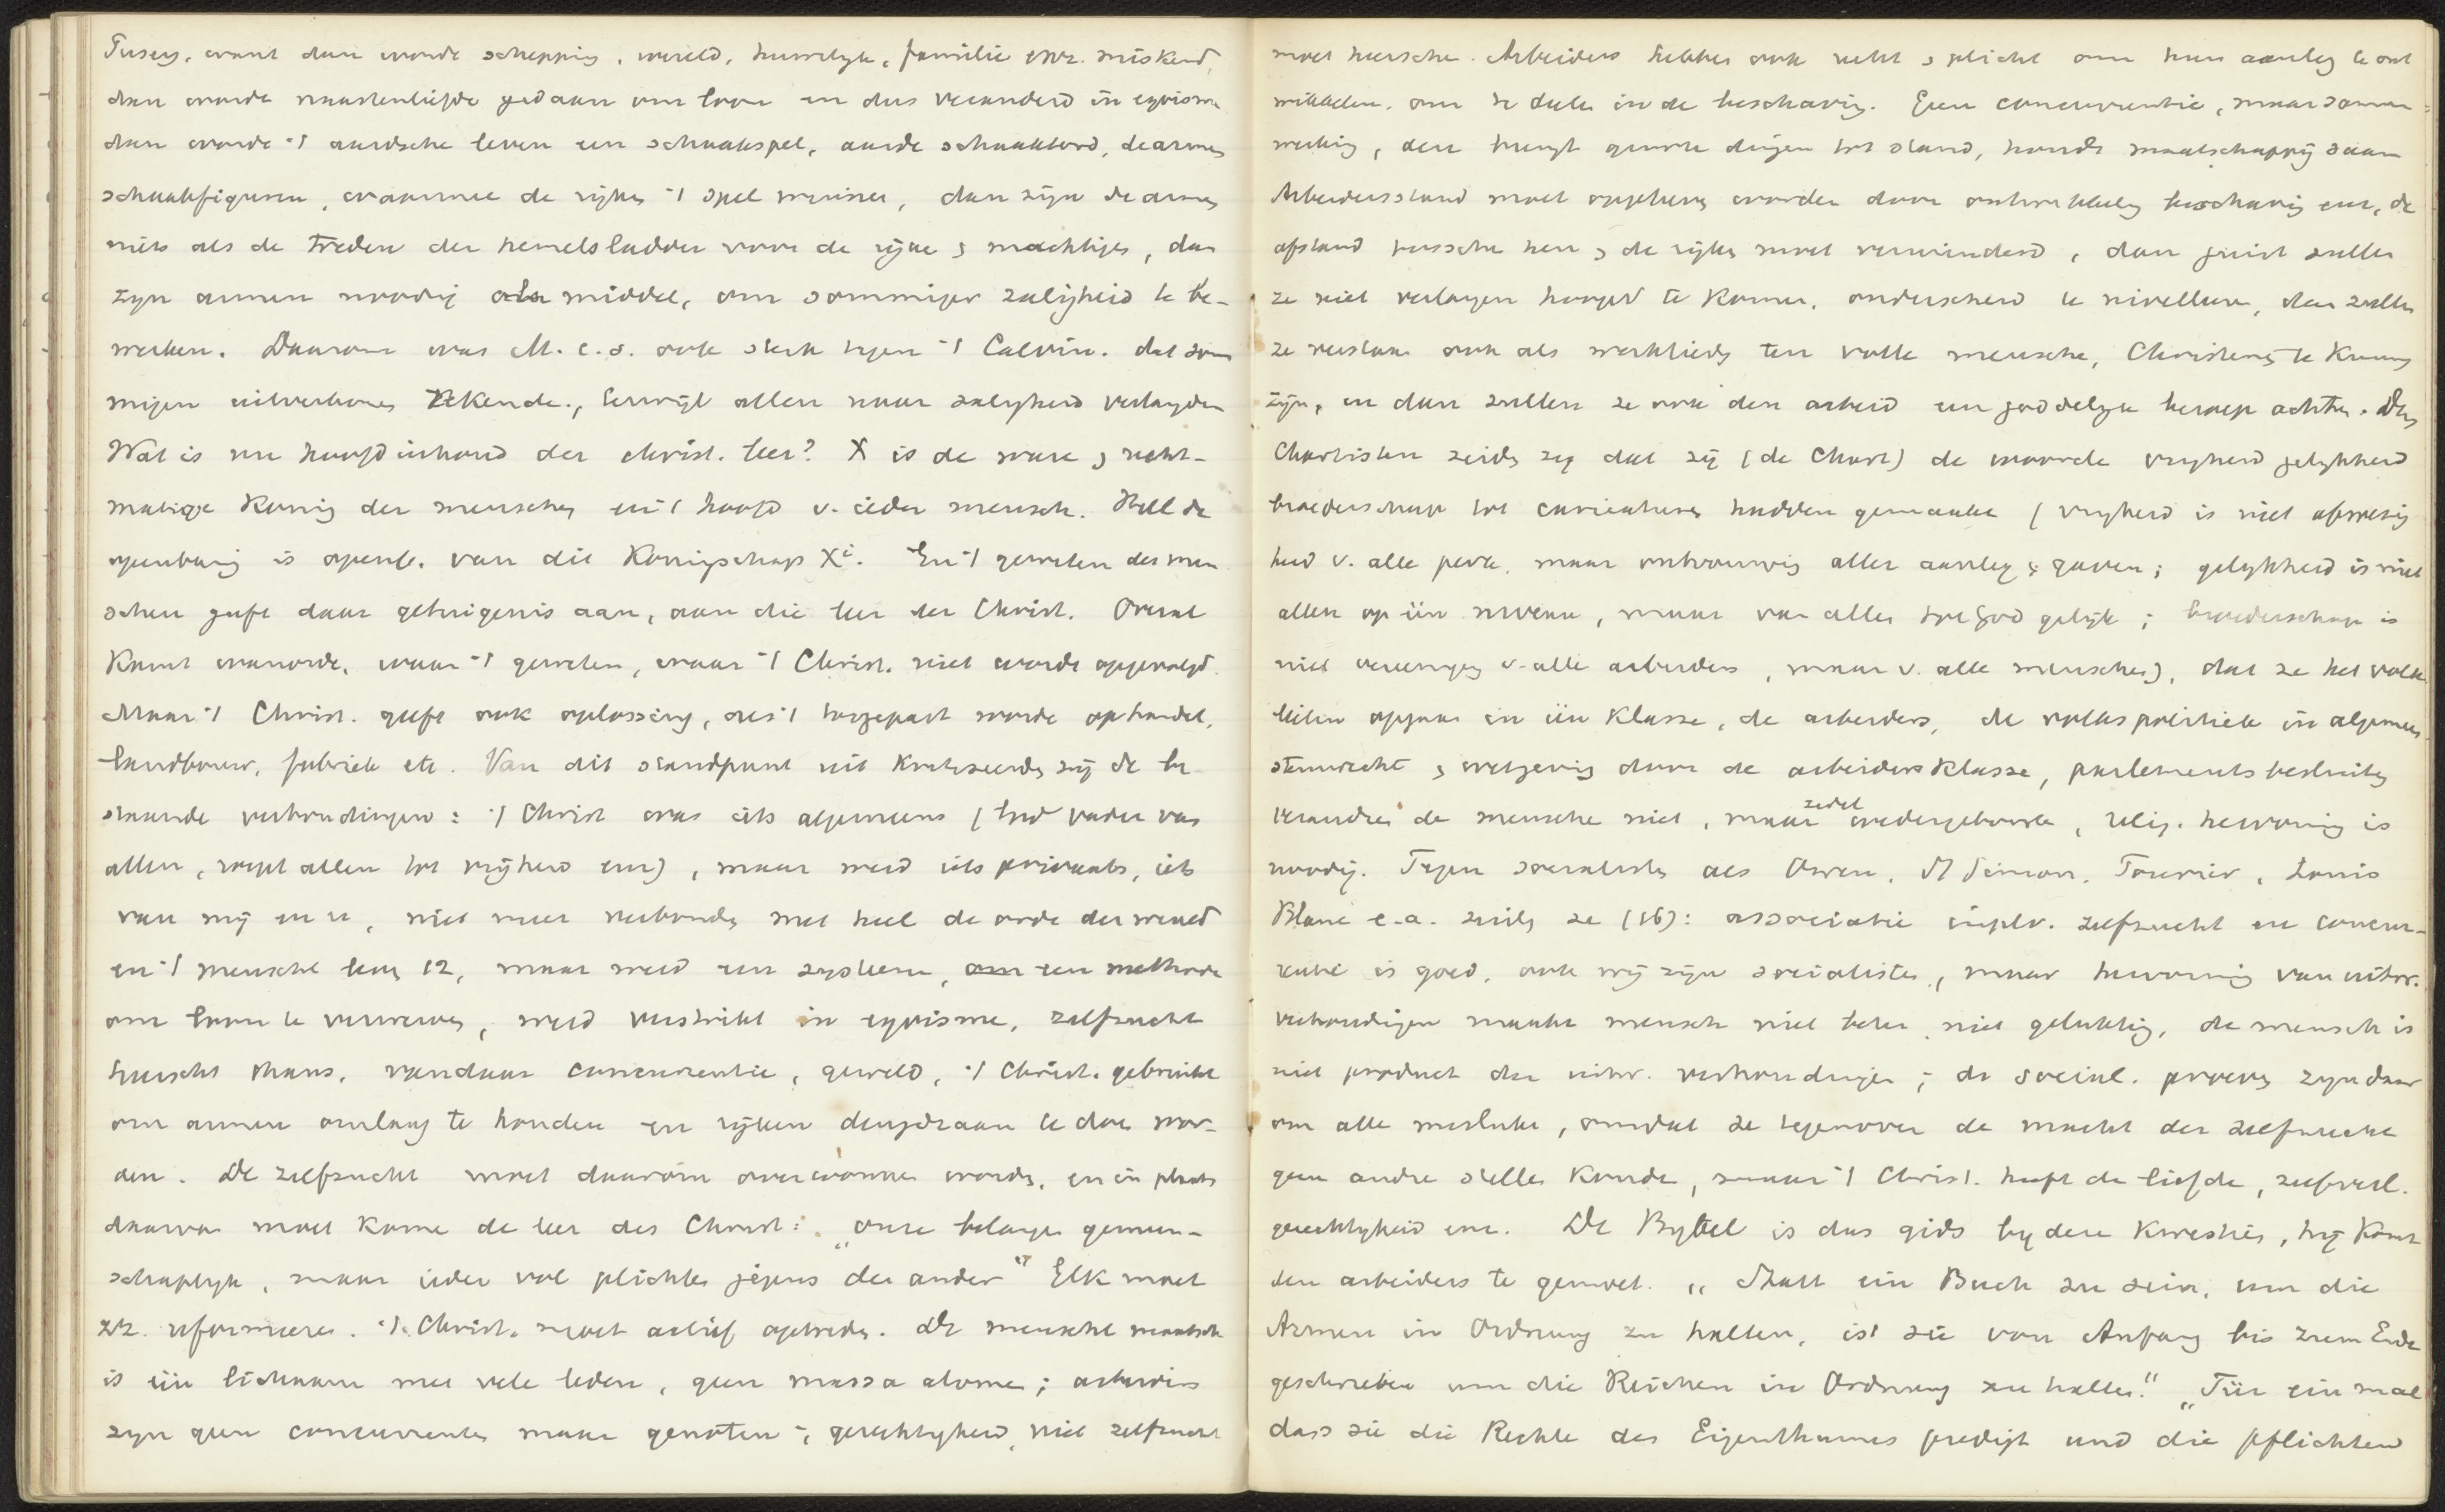 Pusey, want dan wordt schepping, wereld, huwelijk, familie enz. miskend,
dan wordt naastenliefde gedaan om loon en dus veranderd in egoisme
dan wordt 't aardsche leven een schaakspel, aarde schaakbord, de armen
schaakfiguren, waarmee de rijken 't spel winnen, dan zijn de armen
niets als de treden der hemelsladder voor de rijke & machtigen, dan
zijn armen noodig als middel, om sommiger zaligheid te be-
werken. Daarom was M. c.s. ook sterk tegen 't Calvin. dat som
migen uitverkoren rekende, terwijl allen naar zaligheid verlangden
Wat is nu hoofdinhoud der christ. leer? X is de ware & recht-
matige Koning der menschen en 't hoofd v. ieder mensch. Heel de
openbaring is openb. van dit Koningschap Xi. En 't geweten der men
schen geeft daar getuigenis aan, aan die leer der Christ. Overal
komt wanorde, waar 't geweten, waar 't Christ. niet wordt opgevolgd.
Maar 't Christ. geeft ook oplossing, als 't toegepast wordt op handel,
landbouw, fabriek etc. Van dit standpunt uit kritiseerden zij de be-
staande verhoudingen: 't Christ was iets algemeens (God vader van
allen, roept allen tot vrijheid enz), maar werd iets privaats, iets
van mij en u, niet meer verbonden met heel de orde der wereld
en 't menschel. lev. 12, maar werd een systeem, een methode
om loon te verwerven, werd verstrikt in egoisme, zelfzucht
heerscht thans, vandaar concurrentie, geweld, 't Christ. gebruikt
om armen omlaag te houden en rijken deugdzaam te doen wor-
den. De zelfzucht moet daarom overwonnen worden, en in plaats
daarvan moet komen de leer des Christ: „onze belangen gemeen-
schaplijk, maar ieder vol plichten jegens den ander" Elk moet
zz. reformeeren. 't Christ. moet actief optreden. De menschel maatsch
is één lichaam met vele leden, geen massa atomen; arbeiders
zijn geen concurrenten maar genoten; gerechtigheid, niet zelfzucht
moet heerschen. Arbeiders hebben ook recht & plicht om hun aanleg te ont
wikkelen, om te deelen in de beschaving. Geen concurrentie, maar samen-
werking, deze brengt groote dingen tot stand, houdt maatschappij saam
Arbeidersstand moet opgeheven worden door ontwikkeling beschaving enz, de
afstand tusschen hen & de rijken moet verminderd, dan juist zullen
ze niet verlangen hooger te komen, onderscheid te nivelleeren, dan zullen
ze verstaan ook als werklieden ten volle menschen, Christenen te kunnen
zijn, en dan zullen ze ook den arbeid een goddelijk beroep achten. Den
Chartisten zeiden zij dat zij (de Chart) de woorden vrijheid gelijkheid
broederschap tot caricaturen hadden gemaakt (vrijheid is niet afwezig
heid v. alle perk, maar ontvouwing aller aanleg & gaven; gelijkheid is niet
allen op één niveau, maar van allen voor God gelijk; broederschap is
niet vereeniging v. alle arbeiders, maar v. alle menschen), dat ze het volk
lieten opgaan in één klasse, de arbeiders, de volkspolitiek in algemeen
stemrecht & wetgeving door de arbeidersklasse, parlementsbesluiten
veranderen de menschen niet, maar zedel wedergeboorte, relig. hervorming is
noodig. Tegen socialisten als Owen, St Simon, Fourier, Louis
Blanc e.a. zeiden ze (16): associatie inplv. zelfzucht en concur-
rentie is goed, ook wij zijn socialisten, maar hervorming van uitw.
verhoudingen maakt mensch niet beter, niet gelukkig, de mensch is
niet product der uitw. verhoudingen; de social. proeven zijn daar
om alle mislukt, omdat ze tegenover de macht der zelfzucht
geen andre stellen konden, maar 't Christ. heeft de liefde, zelfverl.
gerechtigheid enz. De Bijbel is dus gids bij deze kwesties, hij komt
den arbeiders te gemoet. „Statt ein Buch zu sein, um die
Armen in Ordnung zu halten, ist sie von Anfang bis zum Ende
geschrieben um die Reichen in Ordnung zu halten." „Für ein mal
dass sie die Rechte des Eigenthumes predigt und die Pflichten